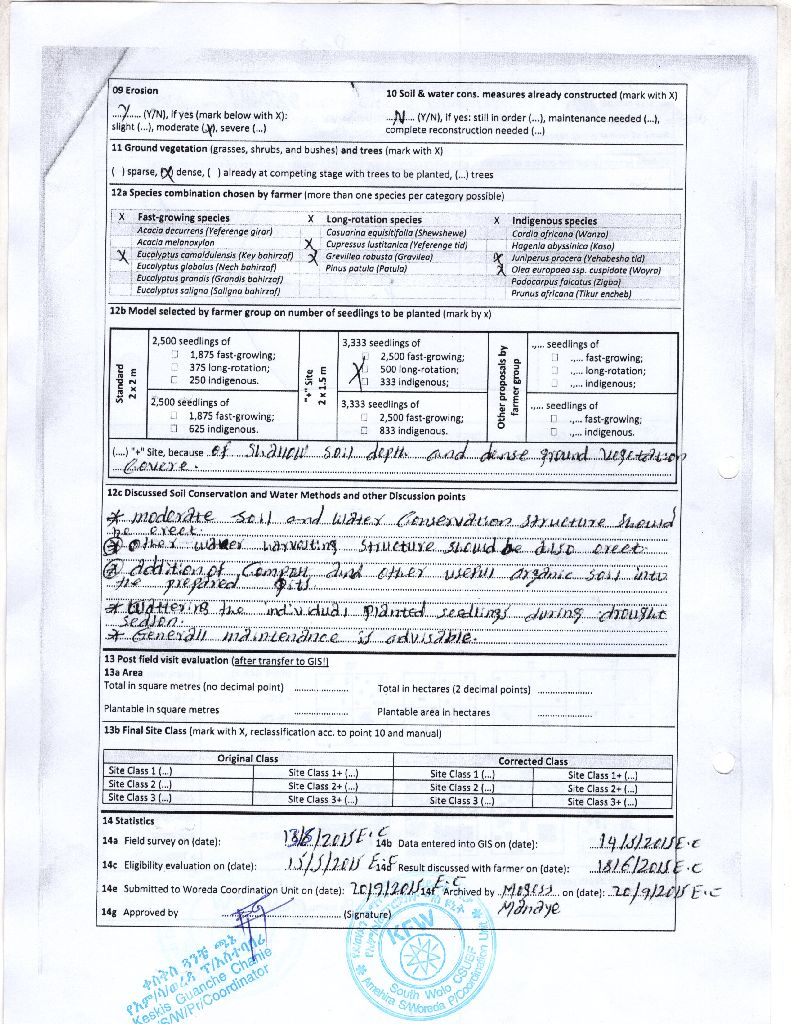 09 Erosion
10 Soil & water cons. measures already constructed (mark with X)
...Y..... (Y/N), if yes (mark below with X):
slight (...), moderate (X), severe (...)
...N.... (Y/N), if yes: still in order (...), maintenance needed (...),
complete reconstruction needed (...)
11 Ground vegetation (grasses, shrubs, and bushes) and trees (mark with X)
( ) sparse, (X) dense, ( ) already at competing stage with trees to be planted, (...) trees
12a Species combination chosen by farmer (more than one species per category possible)
X Fast-growing species
Acacia decurrens (Yeferenge girar)
Acacia melanoxylon
X Eucalyptus camaldulensis (Key bahirzaf)
Eucalyptus globolus (Nech bahirzaf)
Eucalyptus grandis (Grandis bahirzaf)
Eucalyptus saligna (Saligna bahirzaf)
X Long-rotation species
Casuarina equisitifolia (Shewshewe)
X Cupressus lustitanica (Yeferenge tid)
X Grevilea robusta (Gravilea)
Pinus patula (Patula)
X Indigenous species
Cordia africana (Wanza)
Hagenia abyssinica (Koso)
X Juniperus procera (Yehabesha tid)
X Olea europaea ssp. cuspidate (Wayra)
Podocarpus falcatus (Zigba)
Prunus africana (Tikur encheb)
12b Model selected by farmer group on number of seedlings to be planted (mark by x)
Standard
2 x 2 m
2,500 seedlings of
☐ 1,875 fast-growing;
☐ 375 long-rotation;
☐ 250 indigenous.
2,500 seedlings of
☐ 1,875 fast-growing;
☐ 625 indigenous.
"+" Site
2 x 1.5 m
3,333 seedlings of
☐ 2,500 fast-growing;
X 500 long-rotation;
☐ 333 indigenous;
3,333 seedlings of
☐ 2,500 fast-growing;
☐ 833 indigenous.
Other proposals by
farmer group
.,... seedlings of
☐ .,... fast-growing;
☐ .,... long-rotation;
☐ .,... indigenous;
.,... seedlings of
☐ .,... fast-growing;
☐ .,... indigenous.
(....) "+" Site, because of shallow soil depth and dense ground vegetation
covere.
12c Discussed Soil Conservation and Water Methods and other Discussion points
* moderate soil and water conservation structure should
be erect
* other water harvesting structure should be also erect.
* addition of compost and other useful organic soil into
the prepared pits.
* wattering the individual planted seedlings during drought
sedion.
* Generall maintenance is advisable.
13 Post field visit evaluation (after transfer to GIS!)
13a Area
Total in square metres (no decimal point) ....................
Total in hectares (2 decimal points) ....................
Plantable in square metres ....................
Plantable area in hectares ....................
13b Final Site Class (mark with X, reclassification acc. to point 10 and manual)
Original Class
Corrected Class
Site Class 1 (...) Site Class 1+ (...) Site Class 1 (...) Site Class 1+ (...)
Site Class 2 (...) Site Class 2+ (...) Site Class 2 (...) Site Class 2+ (...)
Site Class 3 (...) Site Class 3+ (...) Site Class 3 (...) Site Class 3+ (...)
14 Statistics
14a Field survey on (date): /2015 E.C
14b Data entered into GIS on (date): 14/5/2015 E.C
14c Eligibility evaluation on (date): 15/5/2015 E.C
14d Result discussed with farmer on (date): 18/6/2015 E.C
14e Submitted to Woreda Coordination Unit on (date): 20/9/2015 E.C
14f Archived by Mogess on (date): 20/9/2015 E.C
Manaye
14g Approved by .................... (Signature)
Keskis Guanche Chanie
S/W/Pr/Coordinator
KFW
South Wolo CSUEIF
Amahira S/Woreda P/Coordination